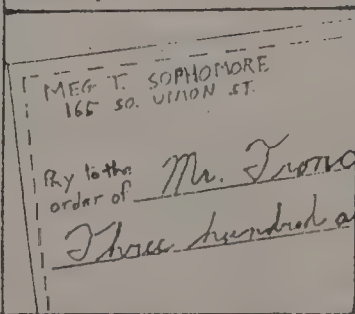 MEG T. SOPHOMORE
165 SO. UNION ST.
Pay to the
order of Mr.
Three hundred